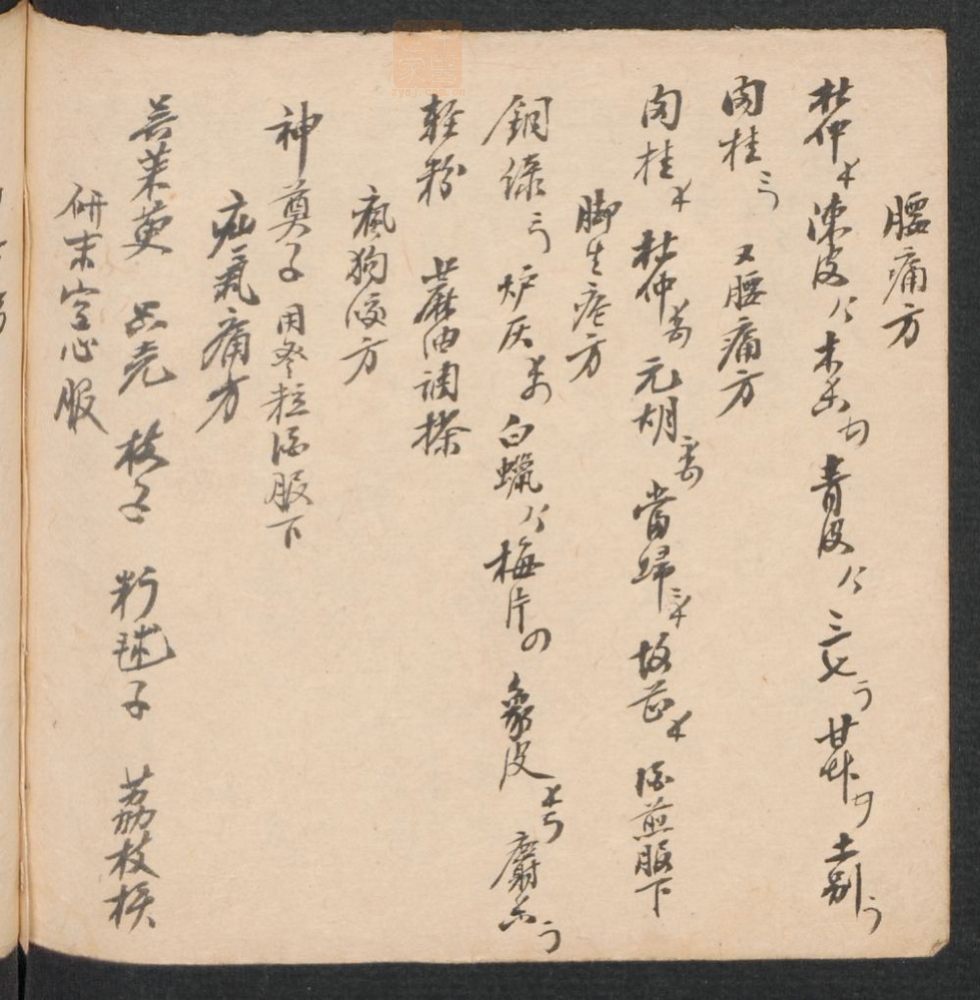 腰痛方
杜仲 陳皮 木香 青皮 三七 甘艸 土別
肉桂
又腰痛方
肉桂 杜仲 元胡 當歸 故芷 酒煎服下
脚生瘡方
銅绿 炉灰 白蠟 梅片 象皮 麝香
輕粉 蔴油調搽
瘋狗咬方
神奠子 用 粒酒服下
疝氣痛方
吳茱萸 吕壳 枝子 毬子 荔枝核
研末空心服